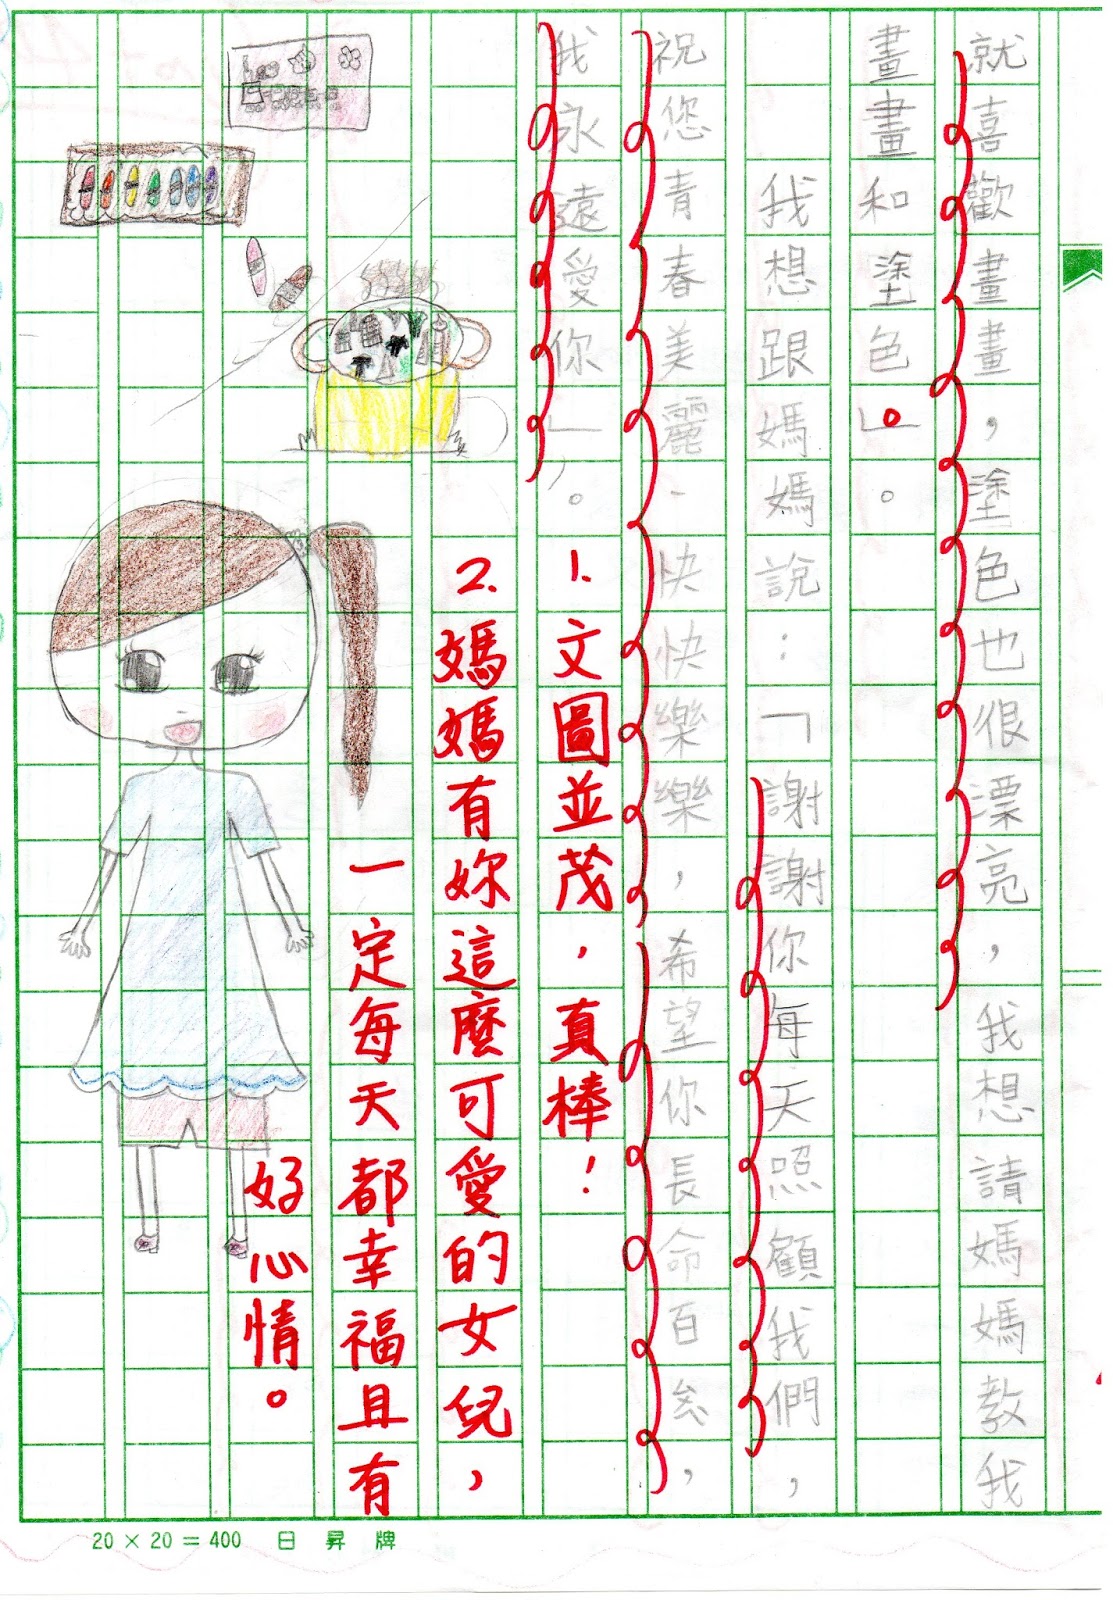 就喜歡畫畫，塗色也很漂亮，我想請媽媽教我
畫畫和塗色。」。
我想跟媽媽說：「謝謝你每天照顧我們，
祝您青春美麗、快快樂樂，希望你長命百，
我永遠愛你」。
1.文圖並茂，真棒！
2.媽媽有妳這麼可愛的女兒，
一定每天都幸福且有
好心情。
20 × 20 = 400 日昇牌